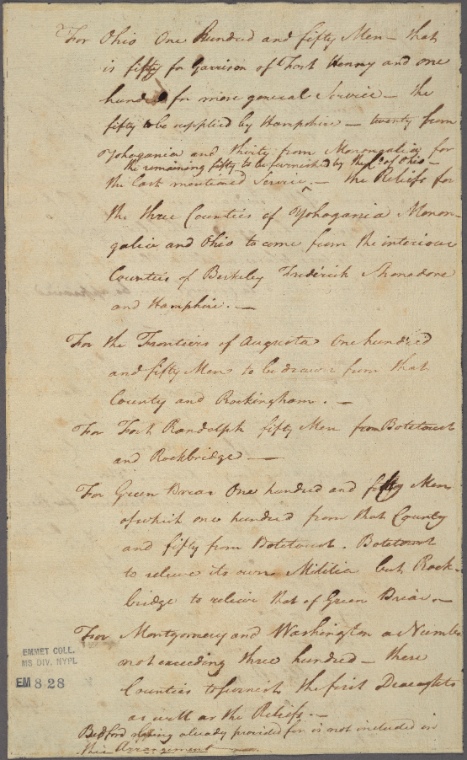 For Ohio One Hundred and fifty Men – that
is fifty for Garrison of Fort Henry and one
hund for more general Service – the
fifty to be supplied by Hampshire – twenty from
Yohogania and thirty from Monongalia for
the remaining fifty to be furnished by the Co. of Ohio –
the last mentioned Service – the Reliefs for
the three Counties of Yohogania Monon-
galia and Ohio to come from the interiour
Counties of Berkeley Frederick Shanadore
and Hampshire. –
For the Frontiers of Augusta One hundred
and fifty Men to be drawn from that
County and Rockingham. –
For Fort Randolph fifty Men from Botetourt
and Rockbridge –
For Green Briar One hundred and fifty Men
of which one hundred from that County
and fifty from Botetourt. Botetourt
to relieve its own Militia but Rock-
bridge to relieve that of Green Briar –
For Montgomery and Washington a Number
not exceeding three hundred – these
Counties to furnish the first Draughts
as well as the Reliefs. –
Bedford being already provided for is not included in
this Arrangement –
EMMET COLL.
MS DIV. NYPL
EM 828